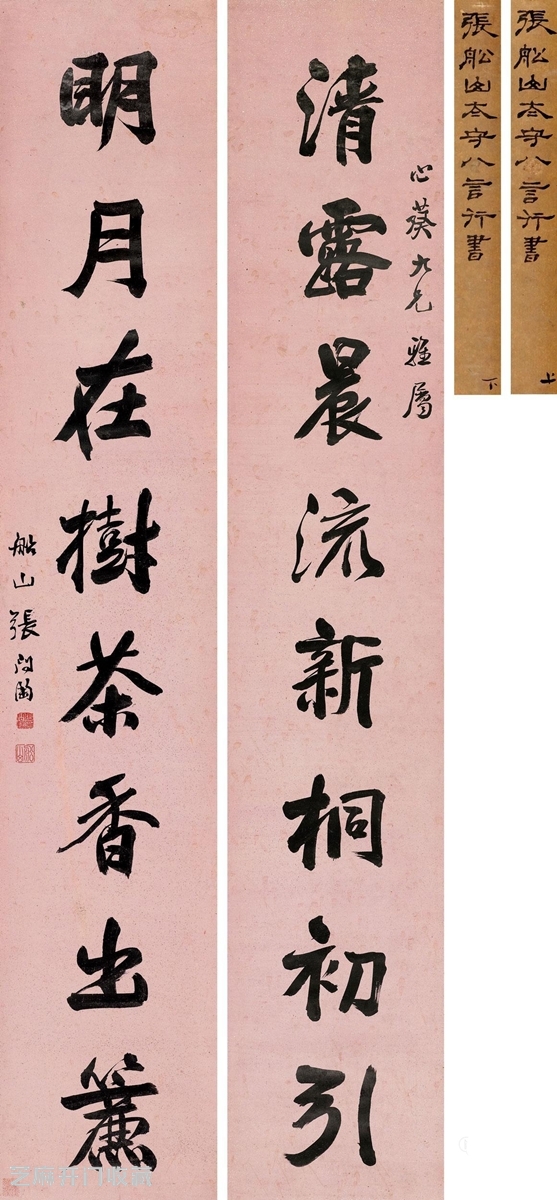 張船山太守八言行書 上
張船山太守八言行書 下
心葵大兄雅屬
清露晨流新桐初引
明月在樹茶香出簾
船山張問陶
芝麻开门收藏